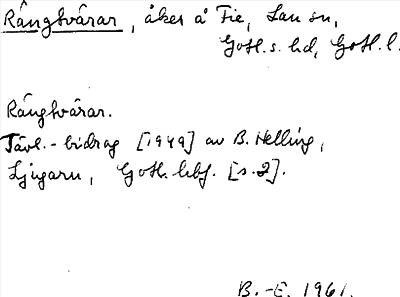 Rångkvårar, åker å Fie, Lau sn,
Gotl. s. hd, Gotl. l.
Rångkvårar.
Tävl.-bidrag [1949] av B. Helling,
Ljugarn, Gotl. hbf. [s. 2].
B.-E. 1961.